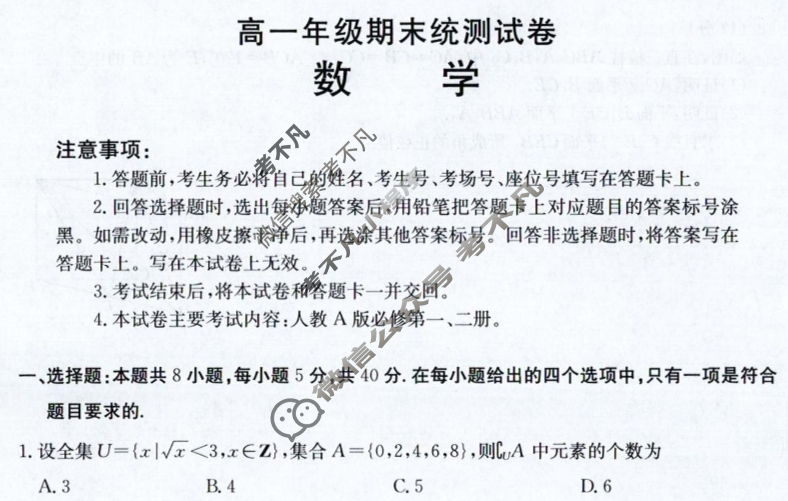 高一年级期末统测试卷
数 学
注意事项:
1. 答题前,考生务必将自己的姓名、考生号、考场号、座位号填写在答题卡上。
2. 回答选择题时,选出每小题答案后,用铅笔把答题卡上对应题目的答案标号涂
黑。如需改动,用橡皮擦干净后,再选涂其他答案标号。回答非选择题时,将答案写在
答题卡上。写在本试卷上无效。
3. 考试结束后,将本试卷和答题卡一并交回。
4. 本试卷主要考试内容:人教 A 版必修第一、二册。
一、选择题:本题共 8 小题,每小题 5 分,共 40 分. 在每小题给出的四个选项中,只有一项是符合
题目要求的.
1. 设全集 U={x|√x<3,x∈Z},集合 A={0,2,4,6,8},则∁UA 中元素的个数为
A. 3 B. 4 C. 5 D. 6
微信搜索考不凡
考不凡小程序
微信公众号 考不凡